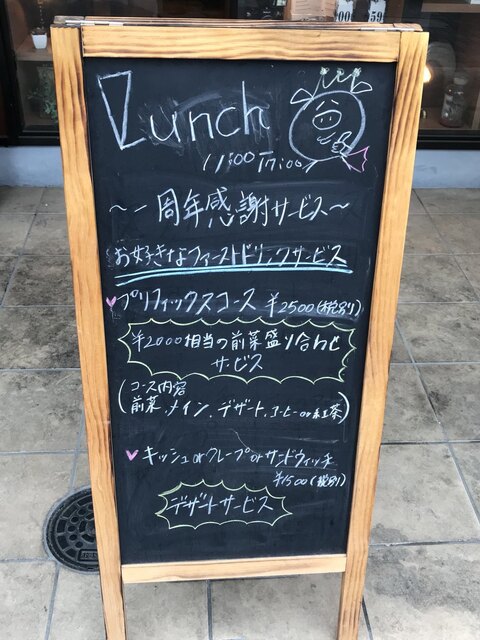 Lunch
11:00 17:00
～一周年感謝サービス～
お好きなファーストドリンクサービス
プリフィックスコース ¥2500(税別)
¥2000相当の前菜盛り合わせ
サービス
コース内容
(前菜.メイン.デザート.コーヒーor紅茶)
キッシュorクレープorサンドウィッチ
¥1500(税別)
デザートサービス